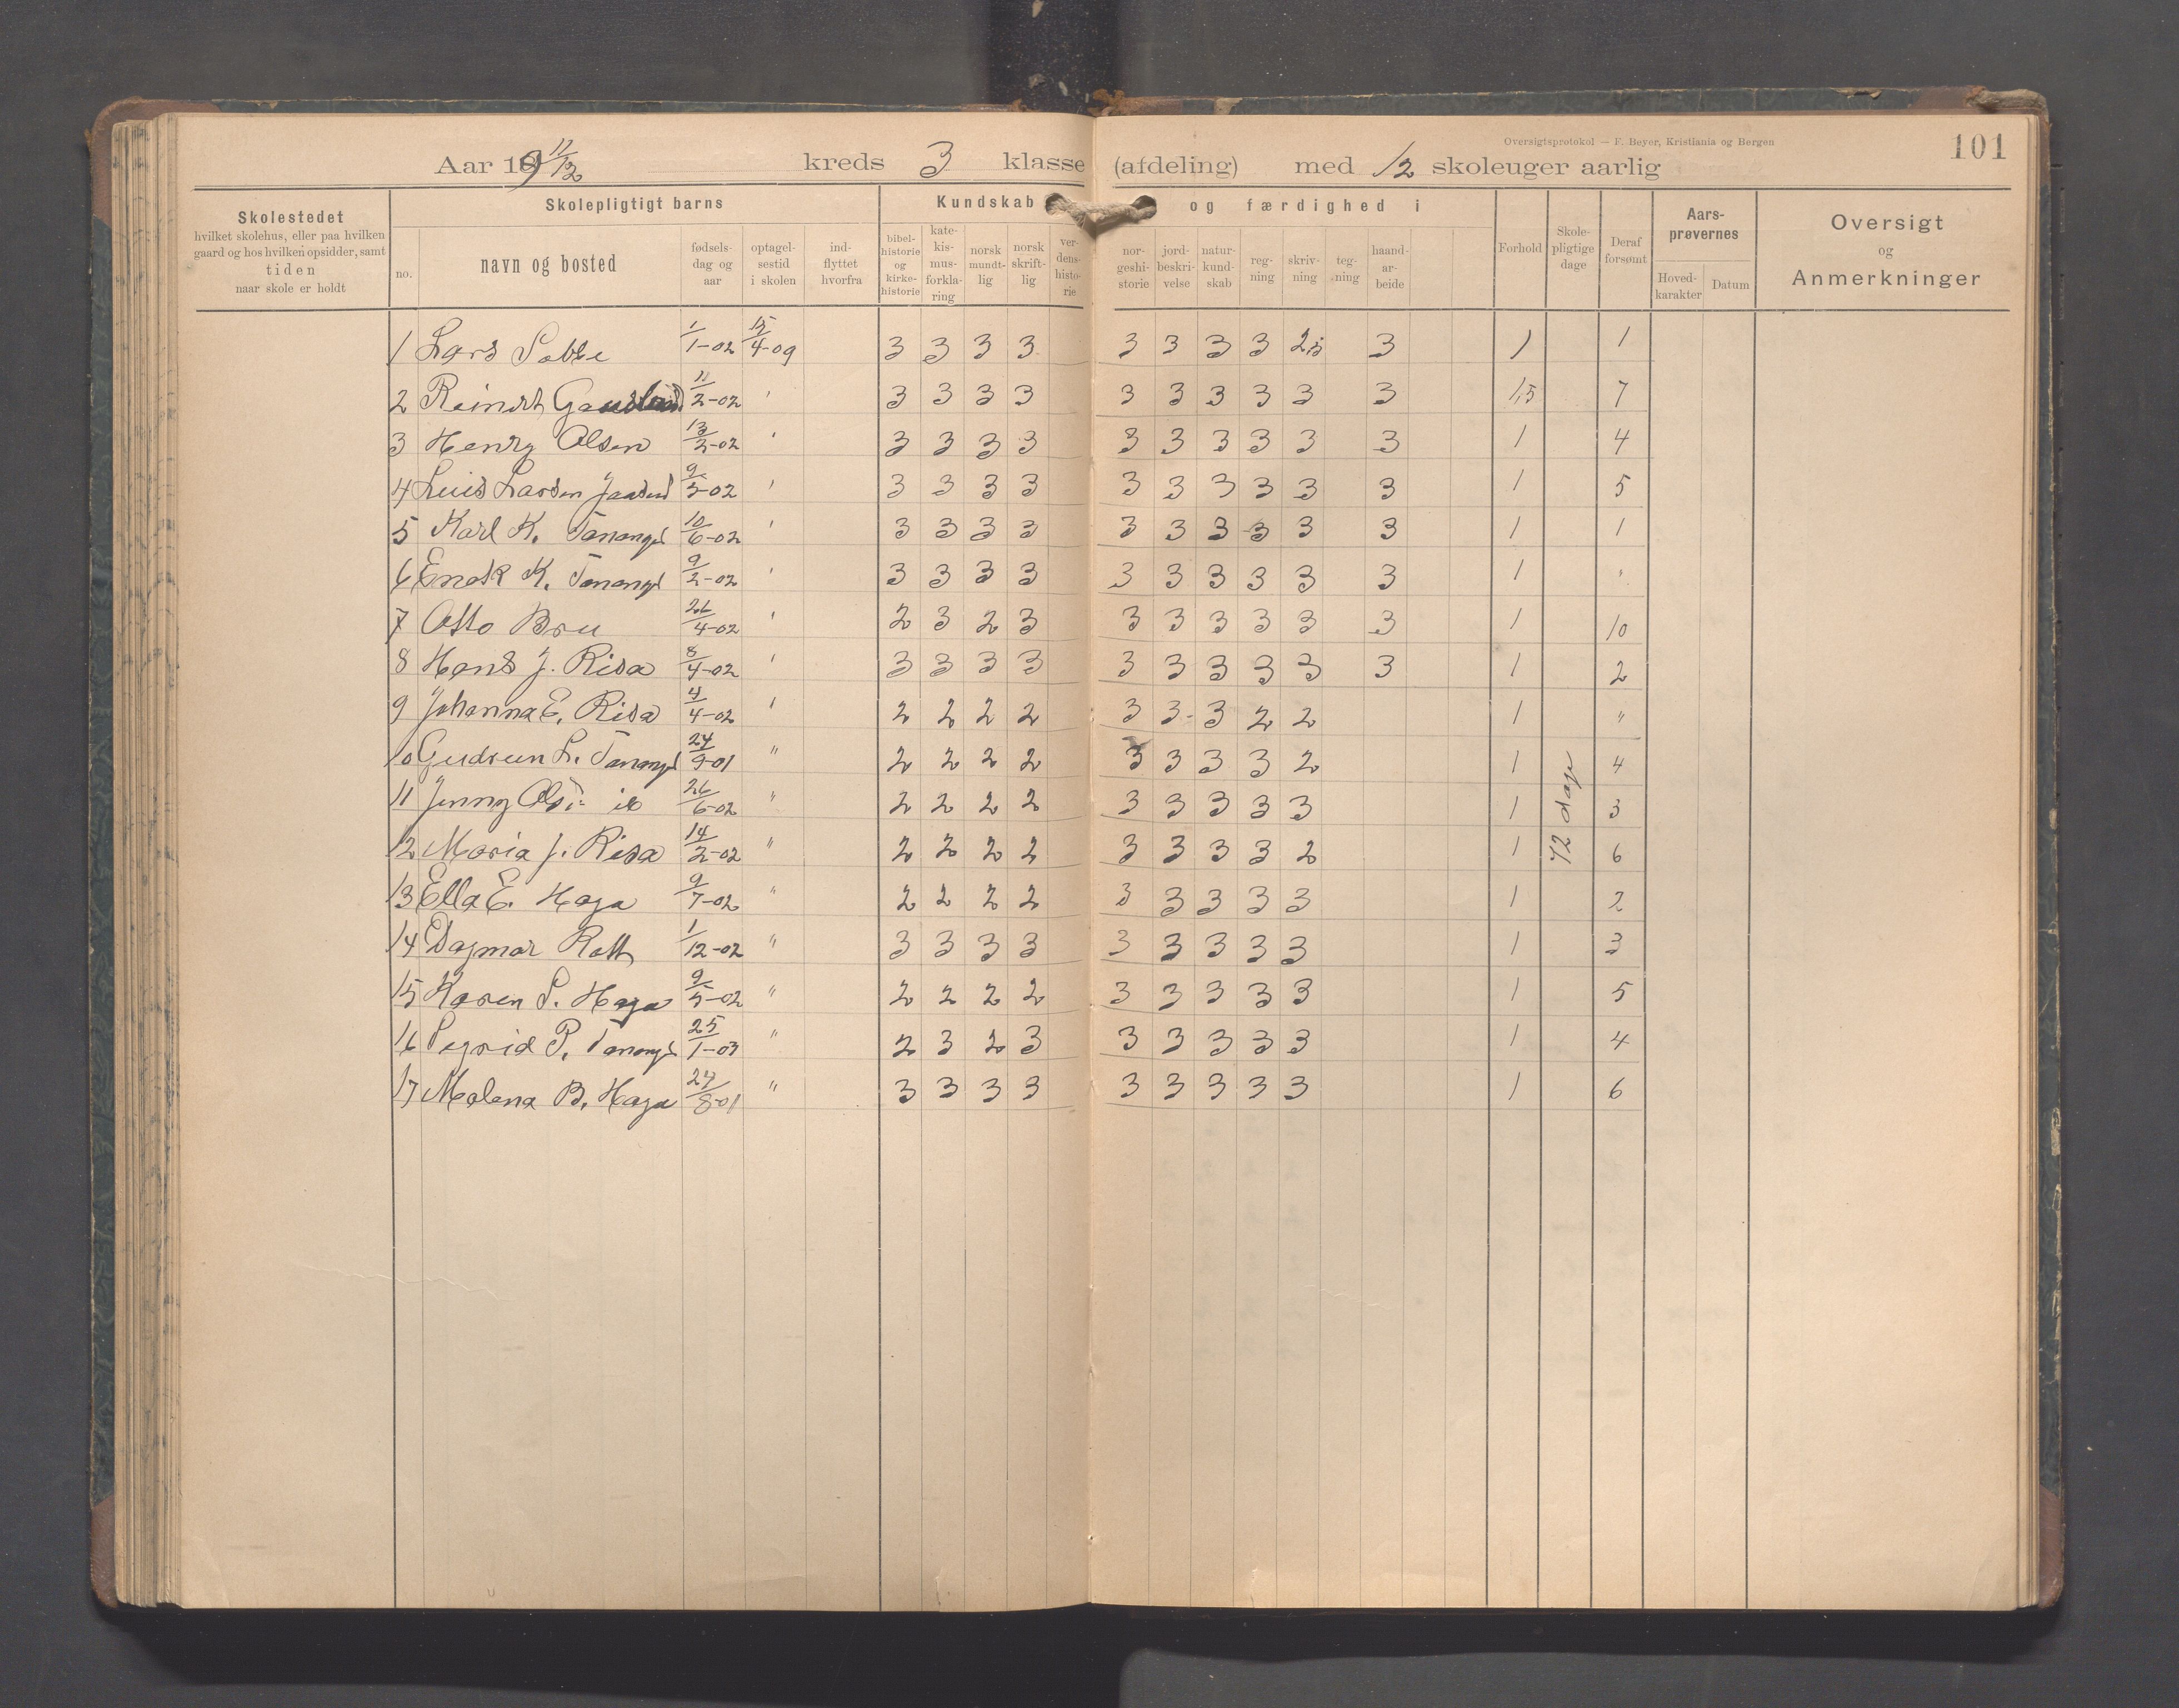 Oversigtsprotokol — F. Beyer, Kristiania og Bergen
101
Aar 19 11/12 kreds 3 klasse (afdeling) med 12 skoleuger aarlig
Skolestedet
hvilket skolehus, eller paa hvilken
gaard og hos hvilken opsidder, samt
tiden
naar skole er holdt
Skolepligtigt barns
no.
navn og bosted
fødsels-
dag og
aar
optagel-
sestid
i skolen
ind-
flyttet
hvorfra
Kundskab og færdighed i
bibel-
historie
og
kirke-
historie
kate-
kis-
mus-
forkla-
ring
norsk
mundt-
lig
norsk
skrift-
lig
ver-
dens-
histo-
rie
nor-
geshi-
storie
jord-
beskri-
velse
natur-
kund-
skab
reg-
ning
skriv-
ning
teg-
ning
haand-
ar-
beide
Forhold
Skole-
pligtige
dage
Deraf
forsømt
Aars-
prøvernes
Hoved-
karakter
Datum
Oversigt
og
Anmerkninger
1 Lars 1/1-02 15/4-09 3 3 3 3 3 3 3 3 2,5 3 1 1
2 Reindt Gausland 11/2-02 " 3 3 3 3 3 3 3 3 3 3 1,5 7
3 Henry Olsen 13/2-02 " 3 3 3 3 3 3 3 3 3 3 1 4
4 Luis Larsen Jaasund 9/5-02 " 3 3 3 3 3 3 3 3 3 3 1 5
5 Karl K. Tananger 10/6-02 " 3 3 3 3 3 3 3 3 3 3 1 1
6 Enok K. Tananger 9/2-02 " 3 3 3 3 3 3 3 3 3 3 1 "
7 Otto Bru 26/4-02 " 2 3 2 3 3 3 3 3 3 3 1 10
8 Hans J. Risa 8/4-02 " 3 3 3 3 3 3 3 3 3 3 1 2
9 Johanna E. Risa 4/4-02 " 2 2 2 2 3 3 3 2 2 1 "
10 Gudrun L. Tananger 24/9-01 " 2 2 2 2 3 3 3 3 2 1 4
11 Jenny Ols: ib 26/6-02 " 2 2 2 2 3 3 3 3 3 1 3
12 Maria J. Risa 14/2-02 " 2 2 2 2 3 3 3 3 2 1 72 dage 6
13 Ella E. Haga 9/7-02 " 2 2 2 2 3 3 3 3 3 1 2
14 Dagmar Rott 1/12-02 " 3 3 3 3 3 3 3 3 3 1 3
15 Karen S. Haga 9/5-02 " 2 2 2 2 3 3 3 3 3 1 5
16 Sigrid P. Tananger 25/1-03 " 2 3 2 3 3 3 3 3 3 1 4
17 Malena B. Haga 24/8-01 " 3 3 3 3 3 3 3 3 3 1 6